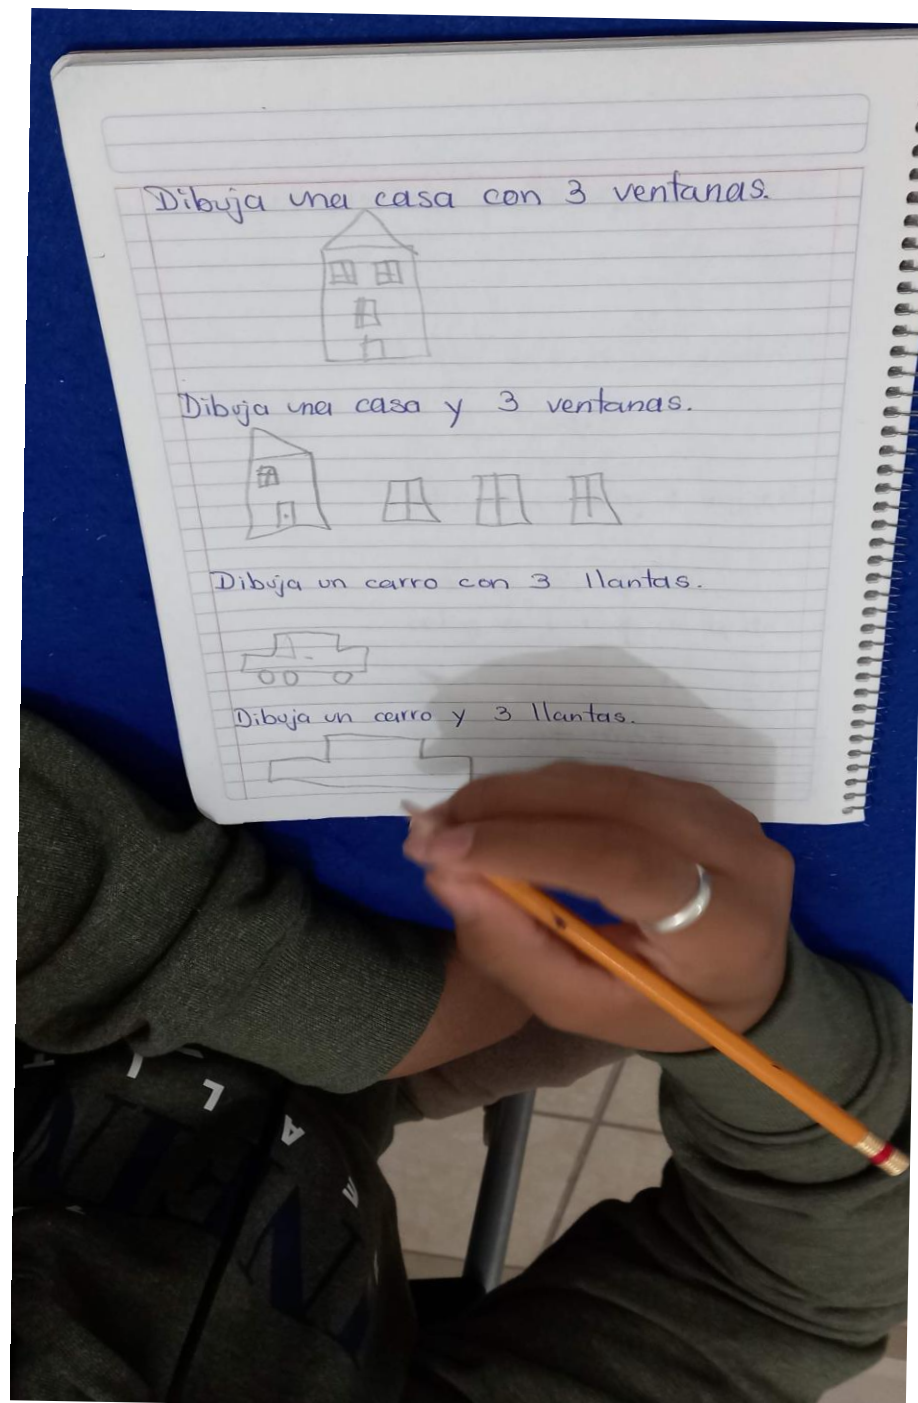 Dibuja una casa con 3 ventanas.
Dibuja una casa y 3 ventanas.
Dibuja un carro con 3 llantas.
Dibuja un carro y 3 llantas.